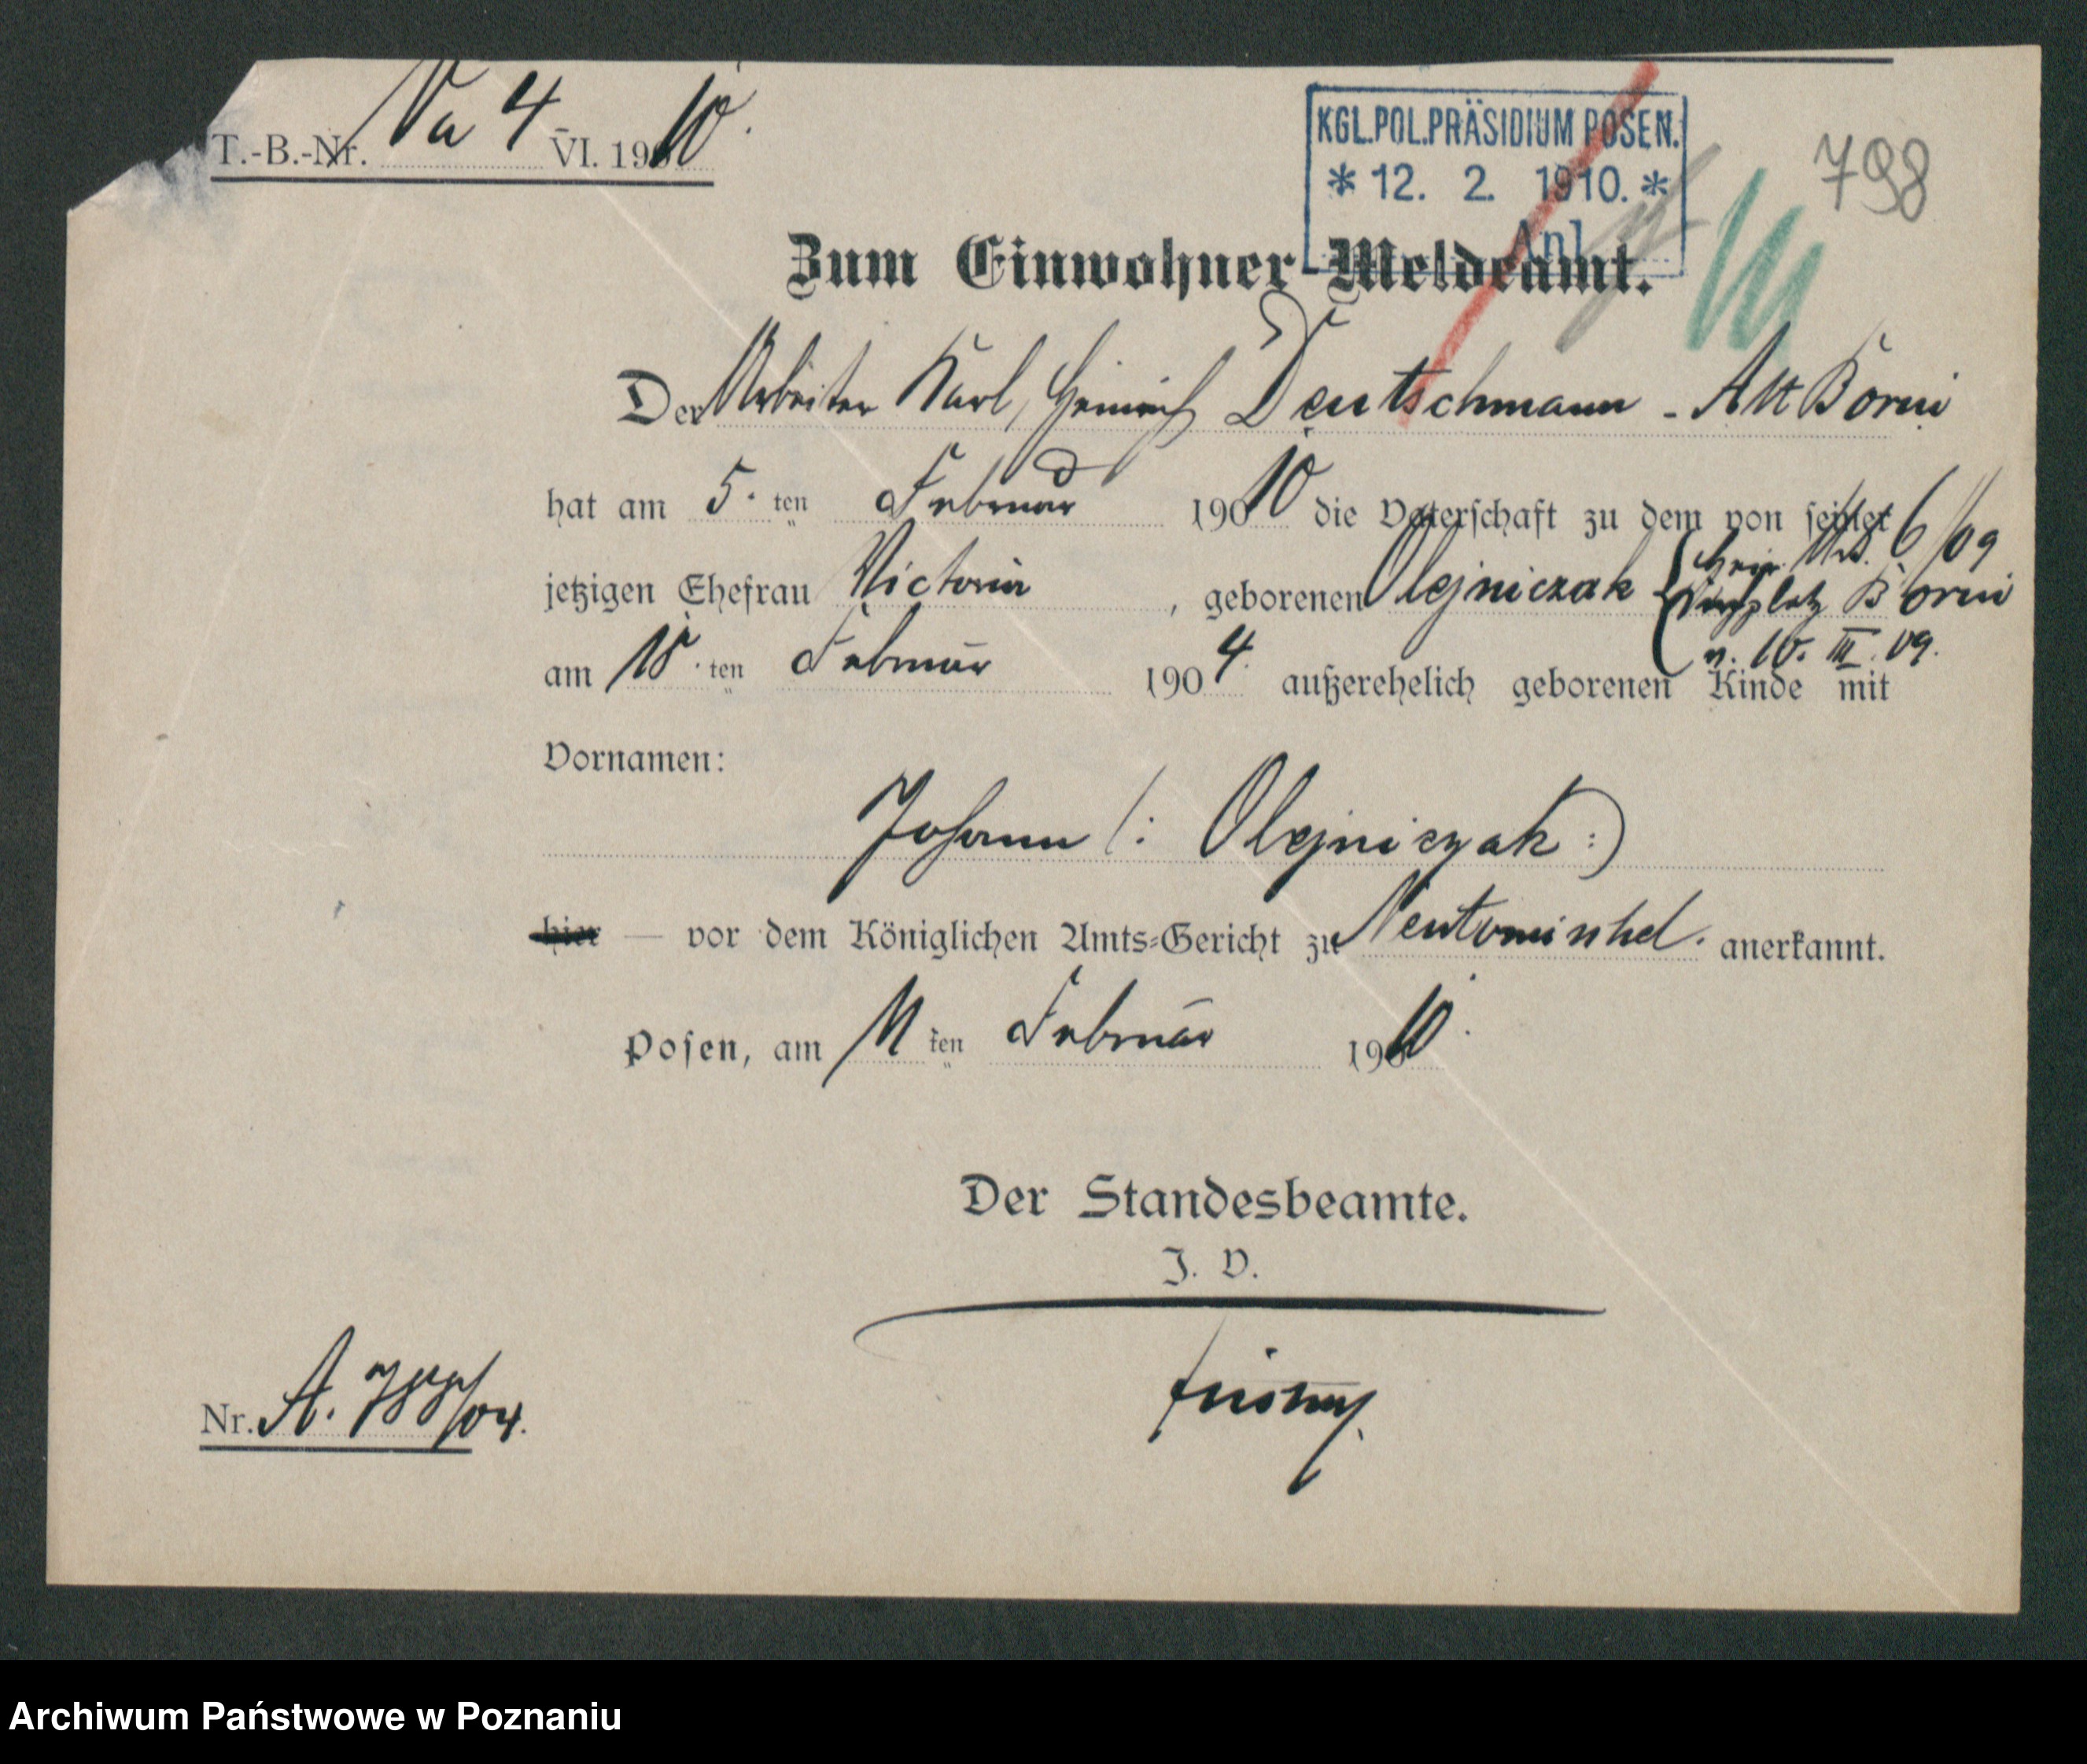 T.-B.-Nr. Va 4 VI. 1910.
KGL.POL.PRÄSIDIUM POSEN.
* 12. 2. 1910. *
Anl.
798
Zum Einwohner-Meldeamt.
Der Arbeiter Karl, Heinrich Deutschmann - Alt Borui
hat am 5. ten Februar 1910 die Vaterschaft zu dem von seiner
jetzigen Ehefrau Victoria, geborenen Olejniczak
Heir. Urk. 6/09
Borui
v. 10. III. 09.
am 15. ten Februar 1904 außerehelich geborenen Kinde mit
Vornamen:
Johann (: Olejniczak :)
hier — vor dem Königlichen Amts-Gericht zu Neutomischel. anerkannt.
Posen, am 11 ten Februar 1910.
Der Standesbeamte.
J. V.
Nr. A. 788/04.
Archiwum Państwowe w Poznaniu